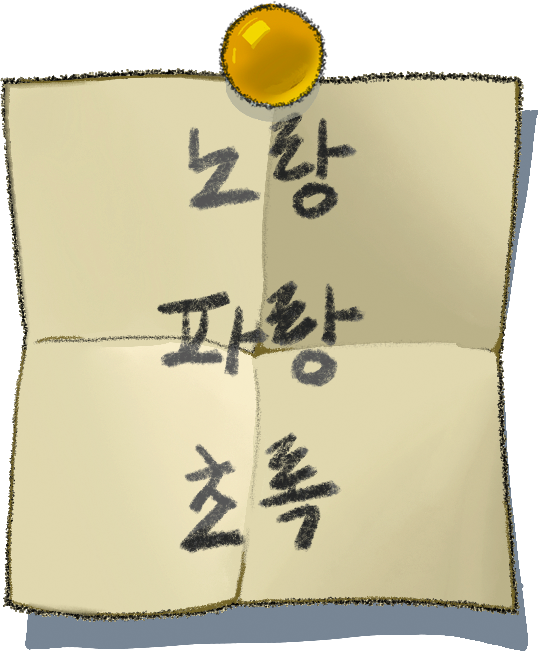 노랑
파랑
초록